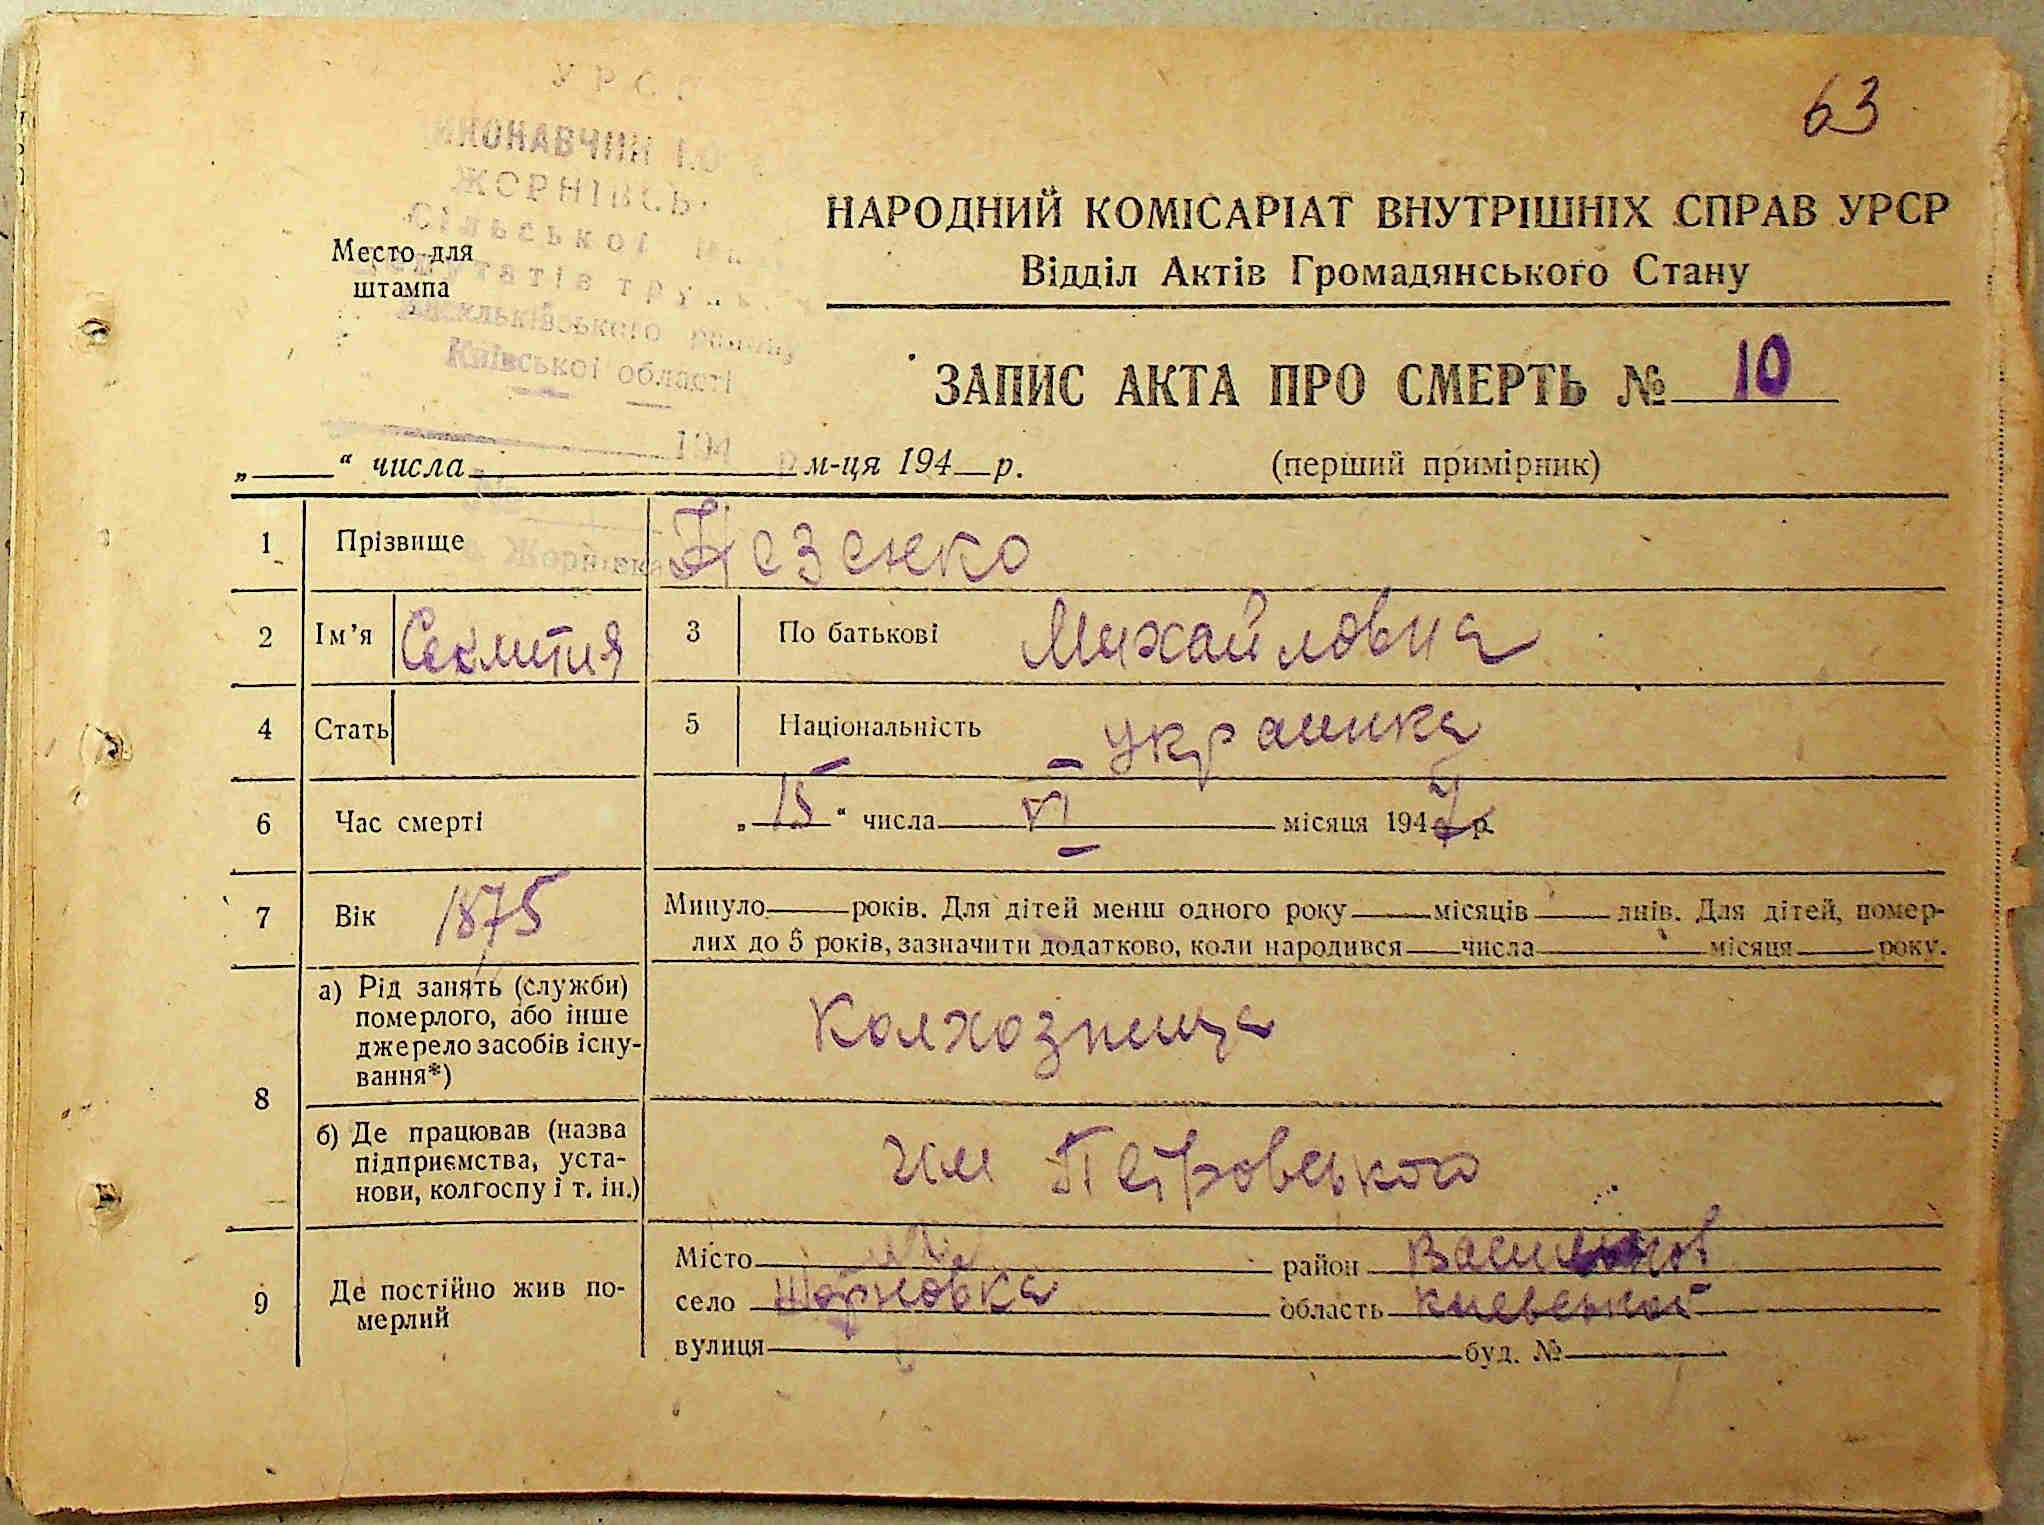 63
УРСР
ЖОРНІВСЬ
Сільської
Депутатів
Васильківського району
Київської області
194
Место для
штампа
НАРОДНИЙ КОМІСАРІАТ ВНУТРІШНІХ СПРАВ УРСР
Відділ Актів Громадянського Стану
ЗАПИС АКТА ПРО СМЕРТЬ № 10
„ “ числа м-ця 194 р. (перший примірник)
1 Прізвище
2 Ім’я 3 По батькові Михайловна
4 Стать 5 Національність украинка
6 Час смерті „ 15 “ числа VI місяця 194 р.
7 Вік 1875 Минуло років. Для дітей менш одного року місяців днів. Для дітей, помер-
лих до 5 років, зазначити додатково, коли народився числа місяця року.
8 а) Рід занять (служби)
померлого, або інше
джерело засобів існу-
вання*)
Колхозница
б) Де працював (назва
підприємства, уста-
нови, колгоспу і т. ін.)
им Петровського
9 Де постійно жив по-
мерлий
Місто район
село область
вулиця буд. №